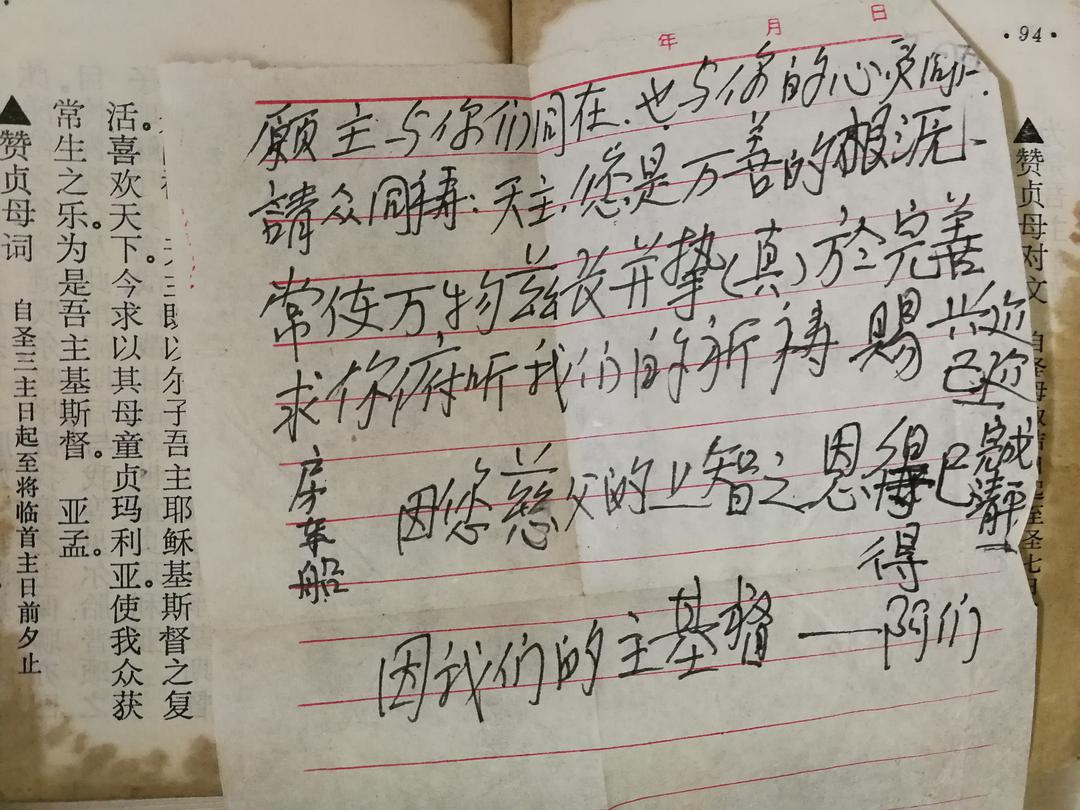 ·94·
▲赞贞母对文
年 月 日
願主与你们同在.也与你的心灵同
請众同祷:天主,您是万善的根源、
常使万物兹长并挚(真)於完善
求你府听我们的祈祷 赐
房车船
因您慈父的上智之恩得已完成
得
因我们的主基督——阿们
主既以尔子吾主耶稣基斯督之复
活。喜欢天下。今求以其母童贞玛利亚。使我众获
常生之乐。为是吾主基斯督。 亚孟。
▲赞贞母词 自圣三主日起至将临首主日前夕止